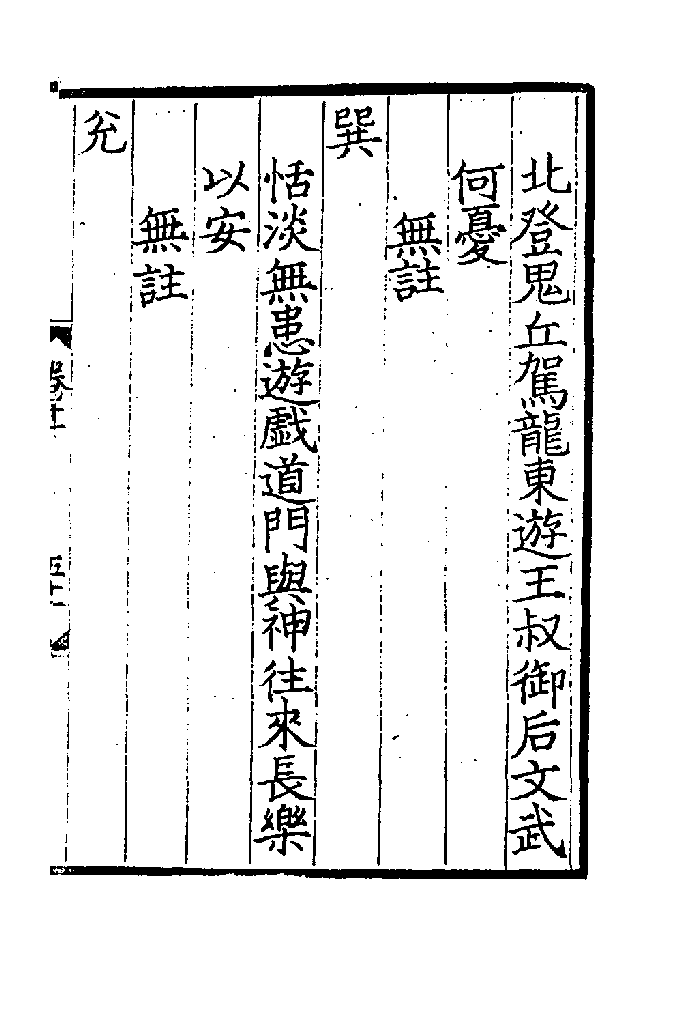 北登鬼丘駕龍東遊王叔御后文武
何憂
無註
巽
恬淡無患遊戲道門與神往來長樂
以安
無註
兊